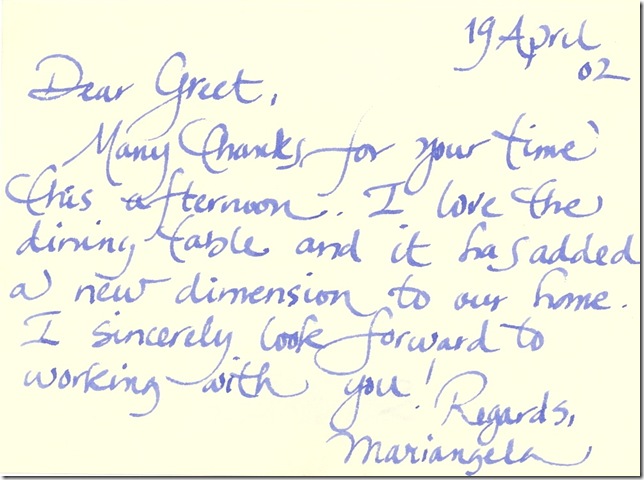 19 April
02
Dear Greet,
Many thanks for your time
this afternoon. I love the
dining table and it has added
a new dimension to our home.
I sincerely look forward to
working with you!
Regards,
Mariangela